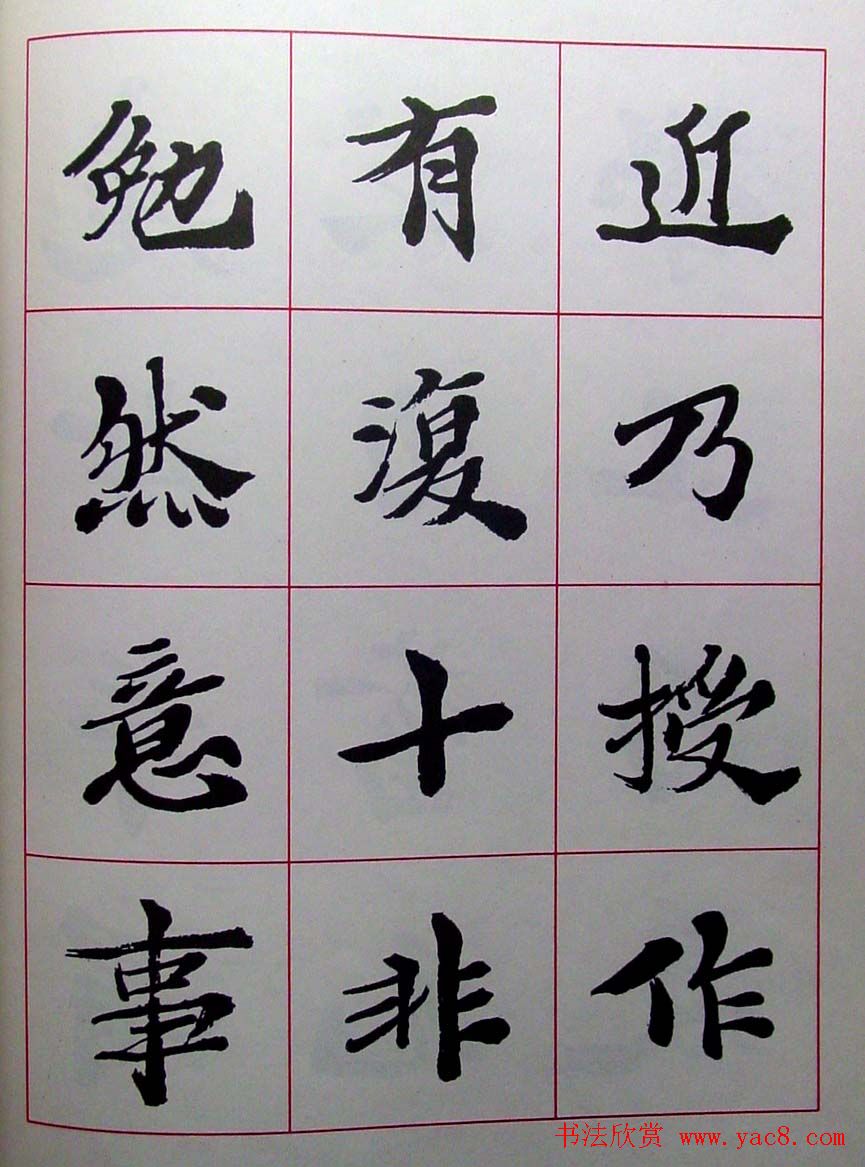 近乃授作
有復十非
勉然意事
书法欣赏 www.yac8.com